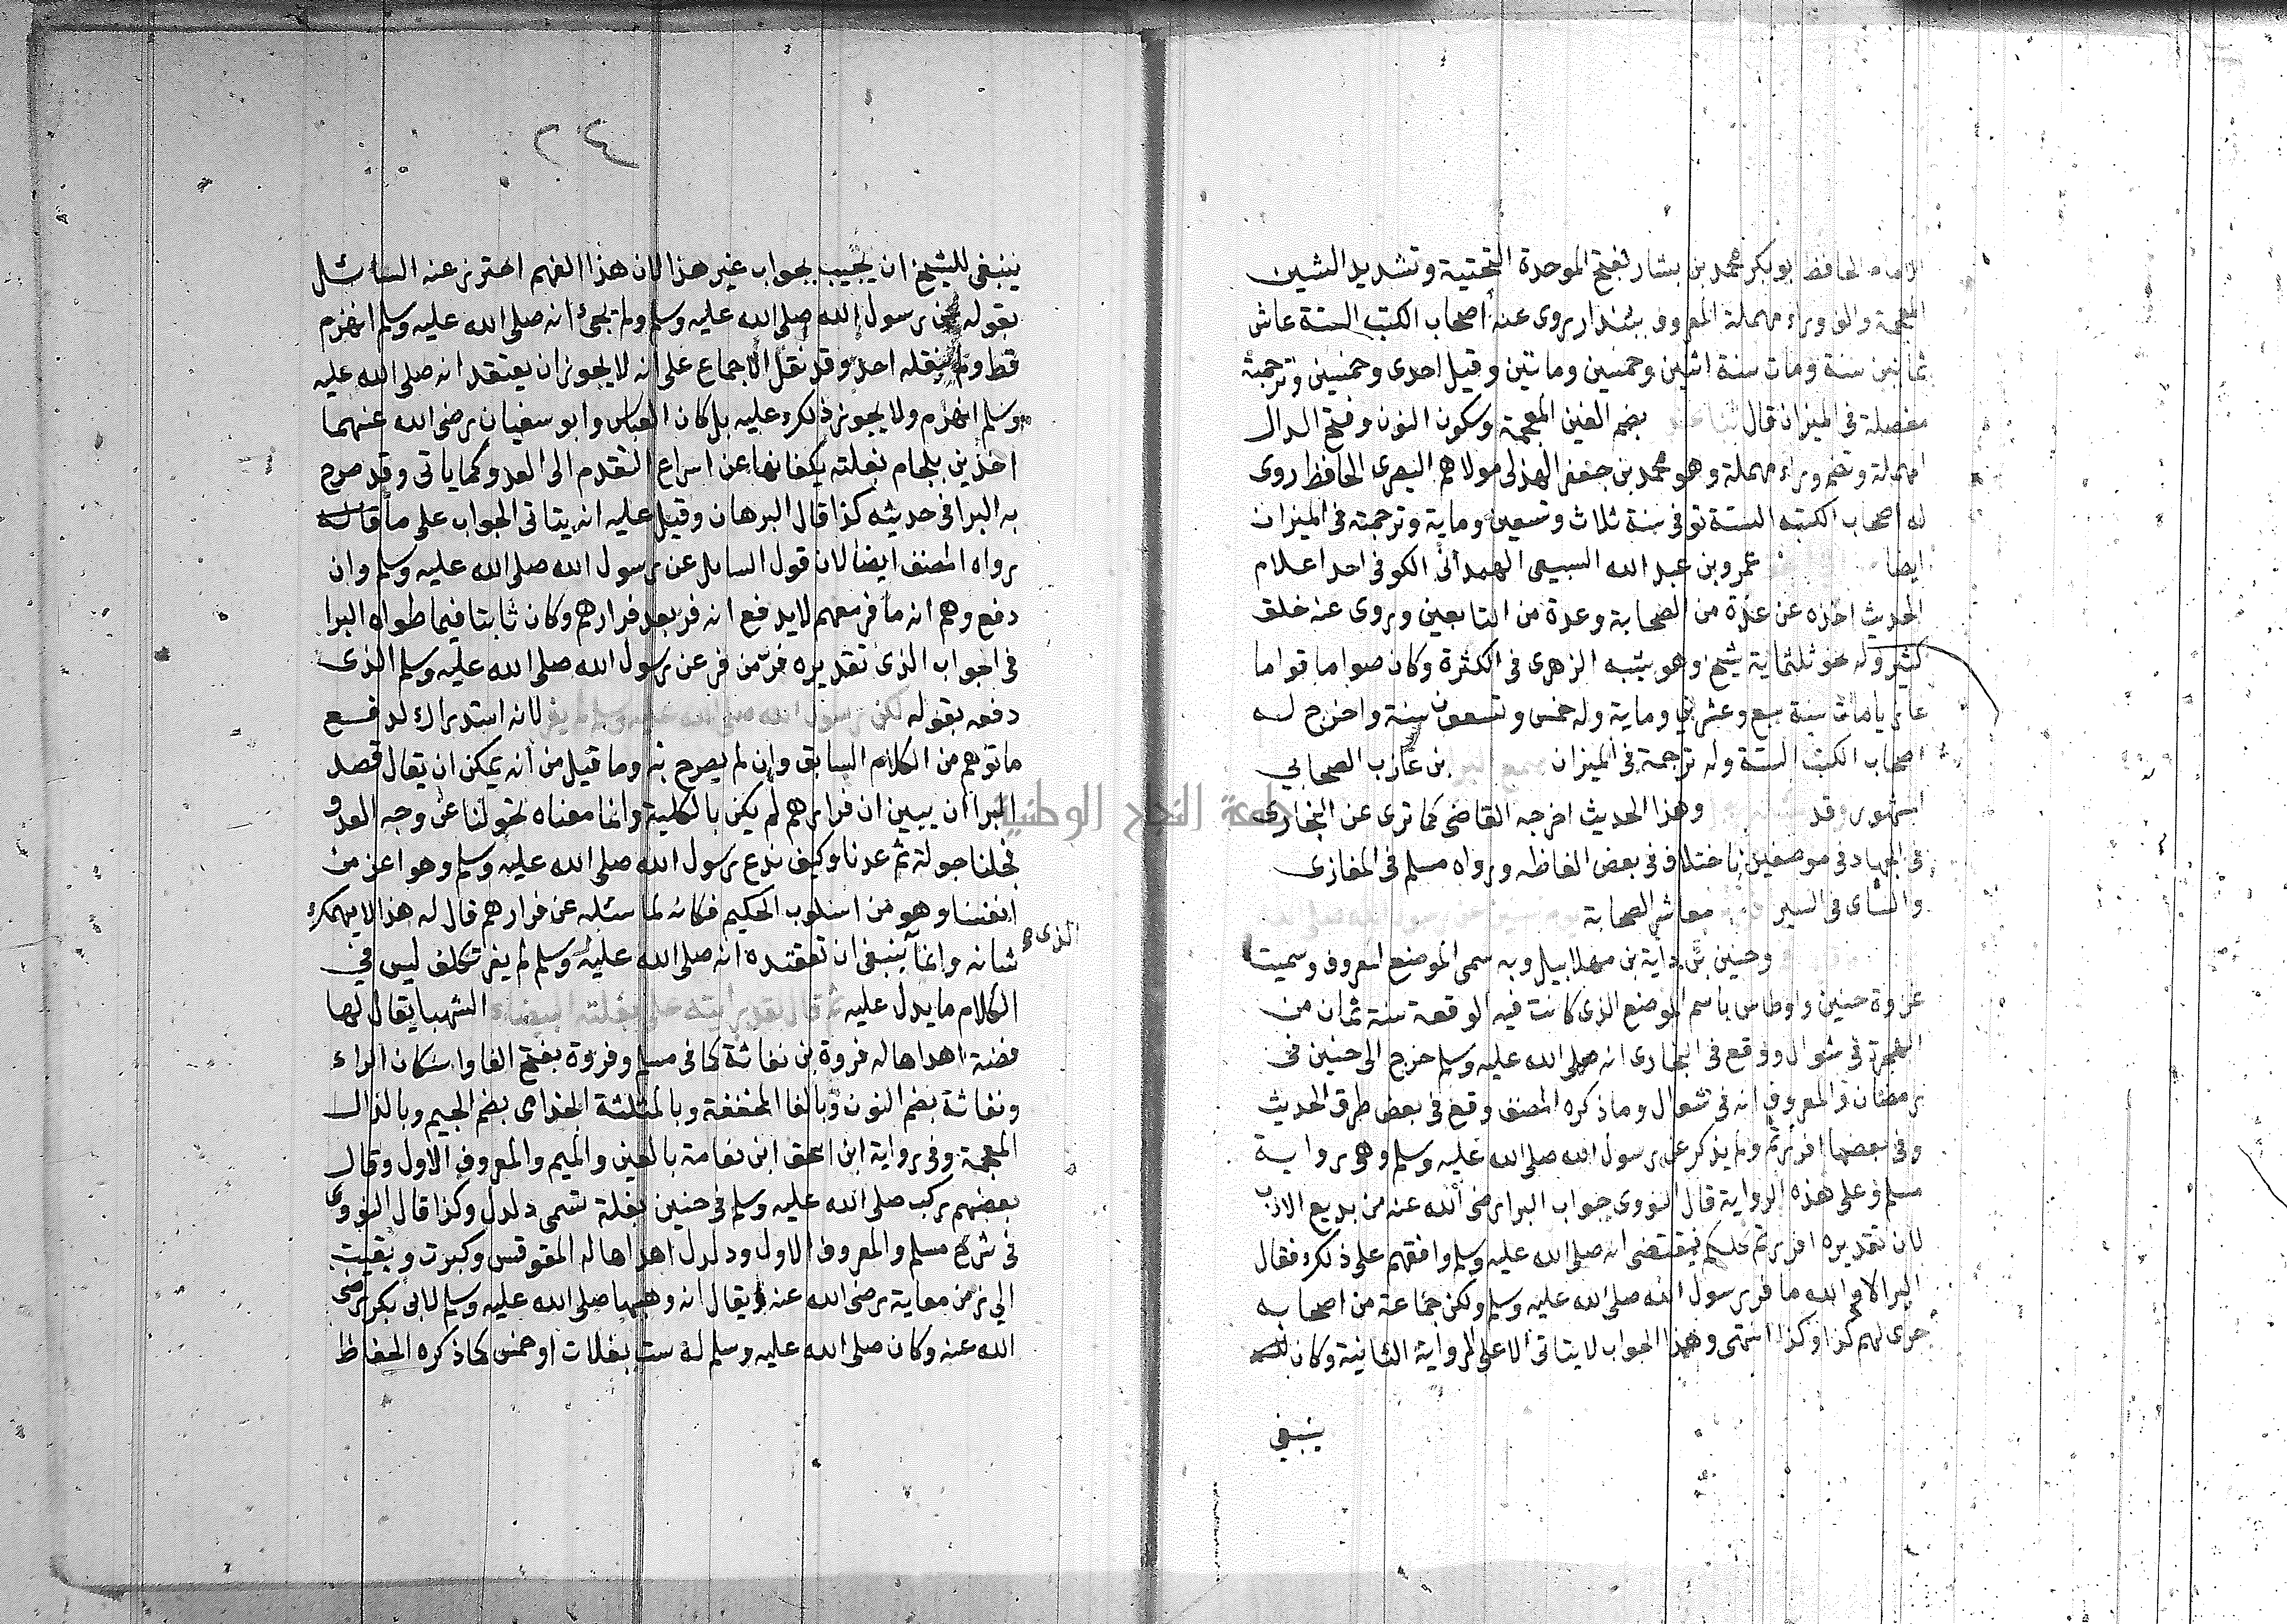 الامام الحافظ ابو بكر محمد بن بشار بفتح الموحدة التحتية وتشديد الشين
المعجمة والف وراء مهملة المعروف ببندار يروى عنه أصحاب الكتب الستة عاش
ثمانين سنة ومات سنة اثنين وخمسين وماتين وقيل احدى وخمسين وترجمته
مفصلة فى الميزان قال بضم الغين المعجمة وسكون النون وفتح الدال
المهملة وتضم وراء مهملة وهو محمد بن جعفر الهذلى مولاهم البصرى الحافظ روى
له اصحاب الكتب الستة توفى سنة ثلاث وتسعين وماية وترجمته فى الميزان
ايضا عمرو بن عبد الله السبيعى الهمدانى الكوفى احد اعلام
الحديث اخذه عن عدة من الصحابة وعدة من التابعين وروى عنه خلق
كثير وله نحو ثلثماية شيخ وهو يشبه الزهرى فى الكثرة وكان صواما قواما
غازيا مات سنة سبع وعشرين وماية وله خمس وتسعون سنة واخرج له
اصحاب الكتب الستة وله ترجمة فى الميزان سمع البرا بن عازب الصحابي
المشهور وقد وهذا الحديث اخرجه القاضى كما ترى عن البخارى
فى الجهاد فى موضعين باختلاف فى بعض الفاظه ورواه مسلم فى المغازى
والنسأى فى السير معاشر الصحابة
وحنين بن داية بن مهلابيل وبه سمى الموضع المعروف وسميت
غزوة حنين واوطاس باسم الموضع الذى كانت فيه الوقعة سنة ثمان من
الهجرة فى شوال ووقع فى البخارى انه صلى الله عليه وسلم خرج الى حنين فى
رمضان والمعروف انه فى شوال وما ذكره المصنف وقع فى بعض طرق الحديث
وفى بعضها افررتم ولم يذكر عن رسول الله صلى الله عليه وسلم وهى رواية
مسلم وعلى هذه الرواية قال النووى جواب البرا رضى الله عنه من بديع الادب
لان تقديره افررتم كلكم فيقتضى انه صلى الله عليه وسلم وافقهم على ذلك فقال
البرا لا والله ما فر رسول الله صلى الله عليه وسلم ولكن جماعة من اصحابه
جرى لهم كذا وكذا انتهى وهذا الجواب لا يتاتى الا على الرواية الثانية وكان
ينبغى
ينبغى للشيخ ان يجيب بجواب غير هذا لان هذا الفهم احترز عنه السائل
بقوله عن رسول الله صلى الله عليه وسلم ولم يجئ انه صلى الله عليه وسلم انهزم
قط ولم ينقله احد وقد نقل الاجماع على انه لا يجوز ان يعتقد انه صلى الله عليه
وسلم انهزم ولا يجوز ذلك عليه بل كان العباس وابو سفيان رضى الله عنهما
اخذين بلجام بغلته يكفانها عن اسراع التقدم الى العدو كما ياتى وقد صرح
به البرا فى حديثه كذا قال البرهان وقيل عليه انه يتاتى الجواب على ما قاله
رواه المصنف ايضا لان قول السايل عن رسول الله صلى الله عليه وسلم وان
دفع وهم انه ما فر معهم لا يدفع انه فر بعد فرارهم وكان ثابتا فيما طواه البرا
فى الجواب الذى تقديره فرّ من فر عن رسول الله صلى الله عليه وسلم الذى
دفعه بقوله لكن رسول الله صلى الله عليه وسلم لم يفر لانه استدراك لدفع
ما توهم من الكلام السابق وان لم يصرح به وما قيل من انه يمكن ان يقال قصد
البرا ان يبين ان فرارهم لم يكن بالكلية وانما معناه تحولنا عن وجه العدو
فجلنا جولة ثم عدنا وكيف ندع رسول الله صلى الله عليه وسلم وهو اعز من
انفسنا وهو من اسلوب الحكيم فكانه لما سئله عن فرارهم قال له هذا لا يهمك
الذى
شانه وانما ينبغى ان تعتقده انه صلى الله عليه وسلم لم يفر تكلف ليس فى
الكلام ما يدل عليه ثم قال لقد رأيته على بغلته البيضاء الشهبا يقال لها
فضة اهداها له فروة بن نفاثة كما فى مسلم وفروة بفتح الفا واسكان الراء
ونفاثة بضم النون وبالفا المخففة وبالمثلثة الجذامى بضم الجيم وبالذال
المعجمة وفى رواية ابن اسحق ابن نعامة بالعين والميم والمعروف الاول وقال
بعضهم ركب صلى الله عليه وسلم فى حنين بغلة تسمى دلدل وكذا قال النووى
فى شرح مسلم والمعروف الاول ودلدل اهداها له المقوقس وكبرت وبقيت
الى زمن معاية رضى الله عنه ويقال انه وهبها صلى الله عليه وسلم لابى بكر رضى
الله عنه وكان صلى الله عليه وسلم له ست بغلات او خمس كما ذكره الحفاظ
جامعة النجاح الوطنية